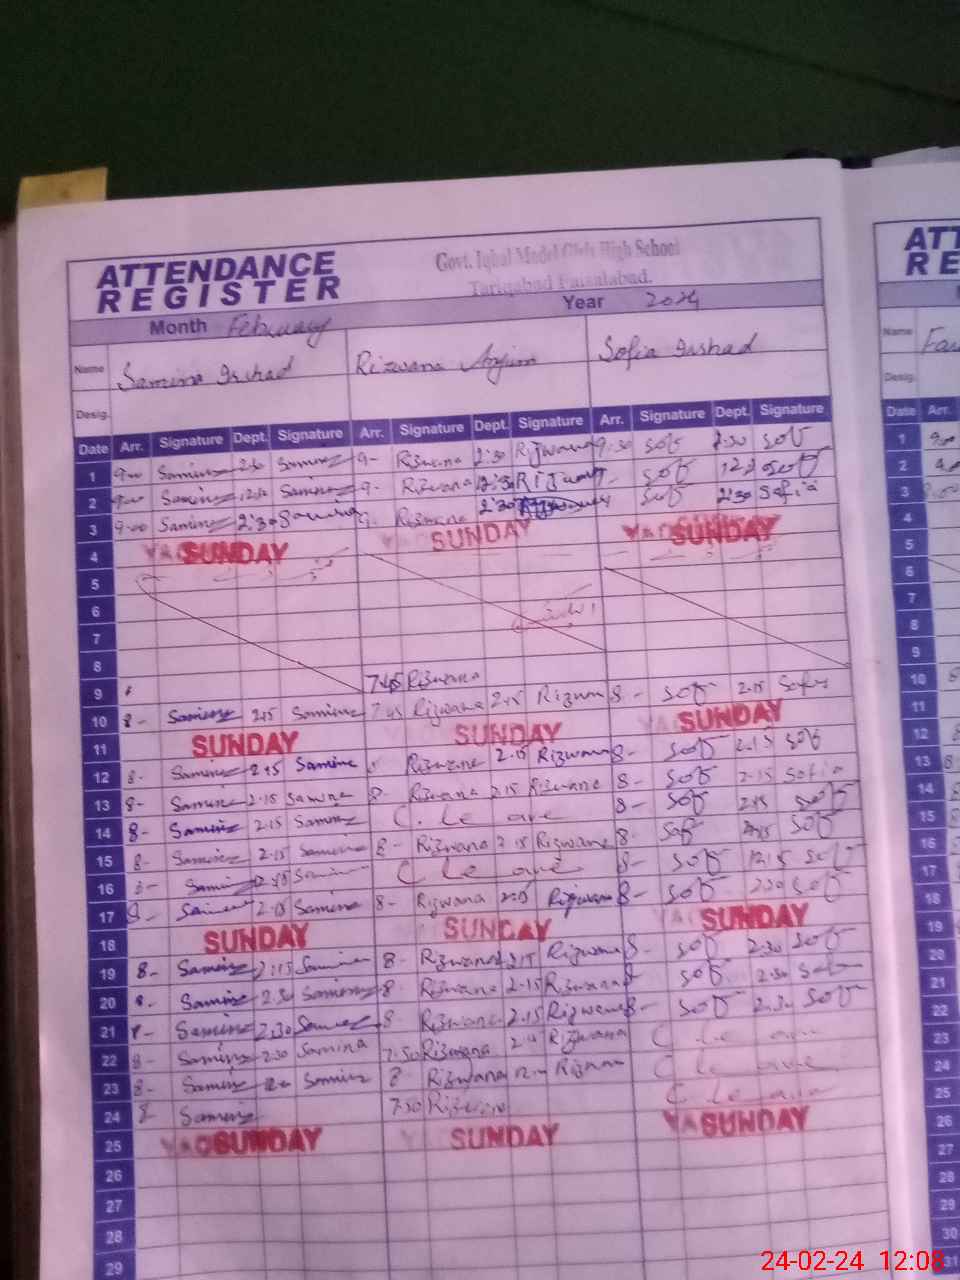 ATTENDANCE
REGISTER
Govt. Iqbal Model Girls High School
Tariqabad Faisalabad.
Month February Year 2024
Name Samina Irshad Rizwana Anjum Sofia Irshad
Desig.
Date Arr. Signature Dept. Signature Arr. Signature Dept. Signature Arr. Signature Dept. Signature
1 9-00 Samina 2:30 Samina 9- Rizwana 2:30 Rizwana 9:30 Sof 2:30 Sof
2 9-00 Samina 12:30 Samina 9- Rizwana 12:30 Sof Sof
3 9-00 Samina 2:30 Rizwana 2:30 Sof 2:30 Sofia
4 SUNDAY SUNDAY SUNDAY
5
6
7
8
9 7:45 Rizwana
10 8- Samina 2:15 Samina 7:45 Rizwana 2:15 Rizwana 8- Sof 2:15
11 SUNDAY SUNDAY SUNDAY
12 8- Samina 2:15 Samina Rizwana 2:15 Rizwana 8- Sof 2:15 Sof
13 8- Samina 2:15 Samina 8- Rizwana 2:15 Rizwana 8- Sof 2:15 Sofia
14 8- Samina 2:15 Samina C. Leave 8- Sof 2:15 Sof
15 8- Samina 2:15 Samina 8- Rizwana 2:15 Rizwana 8- Sof 2:15 Sof
16 8- Samina 12:15 Samina C Leave 8- Sof 12:15 Sof
17 8- Samina 2:15 Samina 8- Rizwana 2:15 Rizwana 8- Sof 2:30 Sof
18 SUNDAY SUNDAY SUNDAY
19 8- Samina 2:15 Samina 8- Rizwana 2:15 Rizwana 8- Sof 2:30 Sof
20 8- Samina 2:30 Samina 8- Rizwana 2:15 Rizwana 8 Sof 2:30 Sof
21 8- Samina 2:30 Samina 8- Rizwana 2:15 Rizwana 8- Sof 2:30 Sof
22 8- Samina 2:30 Samina 7:50 Rizwana Rizwana C Leave
23 8- Samina Samina 8- Rizwana Rizwana C Leave
24 8- Samina 7:30 Rizwana C Leave
25 SUNDAY SUNDAY SUNDAY
26
27
28
29
ATT
RE
Name
Desig.
Date Arr.
1
2
3
4
5
6
7
8
9
10
11
12
13
14
15
16
17
18
19
20
21
22
23
24
25
26
27
28
29
30
31
24-02-24 12:08